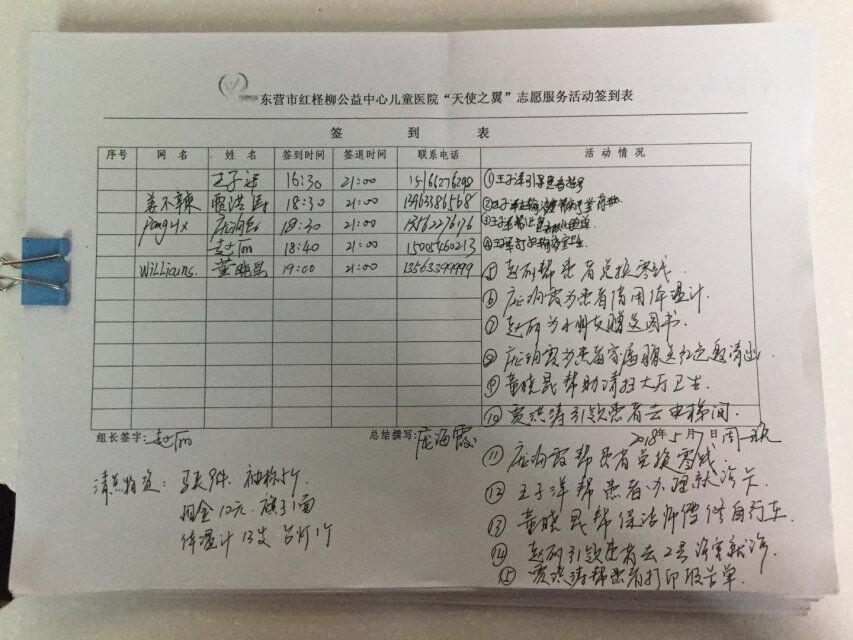 东营市红柽柳公益中心儿童医院“天使之翼”志愿服务活动签到表
签 到 表
序号 网名 姓名 签到时间 签退时间 联系电话 活动情况
王子洋 16:30 21:00 15166276298 ①王子洋引导患者挂号
姜不辣 贾洪涛 18:30 21:00 13963386568 ②王子洋
庞海霞 18:30 21:00 ③王子洋帮
赵丽 18:40 21:00 15005460213 ④王子洋
Williams. 董晓昆 19:00 21:00 13563399999 ⑤赵丽帮患者兑换零钱.
⑥庞海霞为患者借用体温计.
⑦赵丽为小朋友赠送图书.
⑧庞海霞为患者家属
⑨董晓昆帮助清扫大厅卫生.
⑩贾洪涛引领患者去电梯间.
组长签字: 赵丽 总结撰写: 庞海霞 2018年5月7日周一晚
⑪庞海霞帮患者兑换零钱.
清点物资: 马夹9件. 袖标5个. ⑫王子洋帮患者办理就诊卡
现金12元. 旗子1面 ⑬董晓昆帮保洁师傅修自行车.
体温计13支 台灯1个 ⑭赵丽引领患者去2号诊室就诊.
⑮贾洪涛帮患者打印报告单.